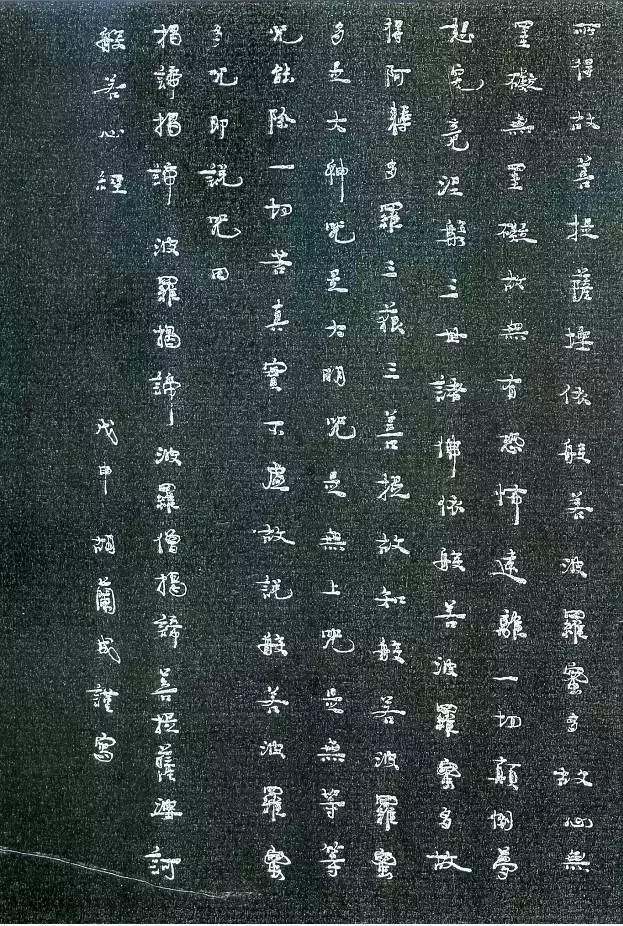 所得故菩提薩埵依般若波羅蜜多故心無
罣礙無罣礙故無有恐怖遠離一切顛倒夢
想究竟涅槃三世諸佛依般若波羅蜜多故
得阿耨多羅三藐三菩提故知般若波羅蜜
多是大神咒是大明咒是無上咒是無等等
咒能除一切苦真實不虛故說般若波羅蜜
多咒即說咒曰
揭諦揭諦波羅揭諦波羅僧揭諦菩提薩婆訶
般若心經
戊申胡蘭成謹寫